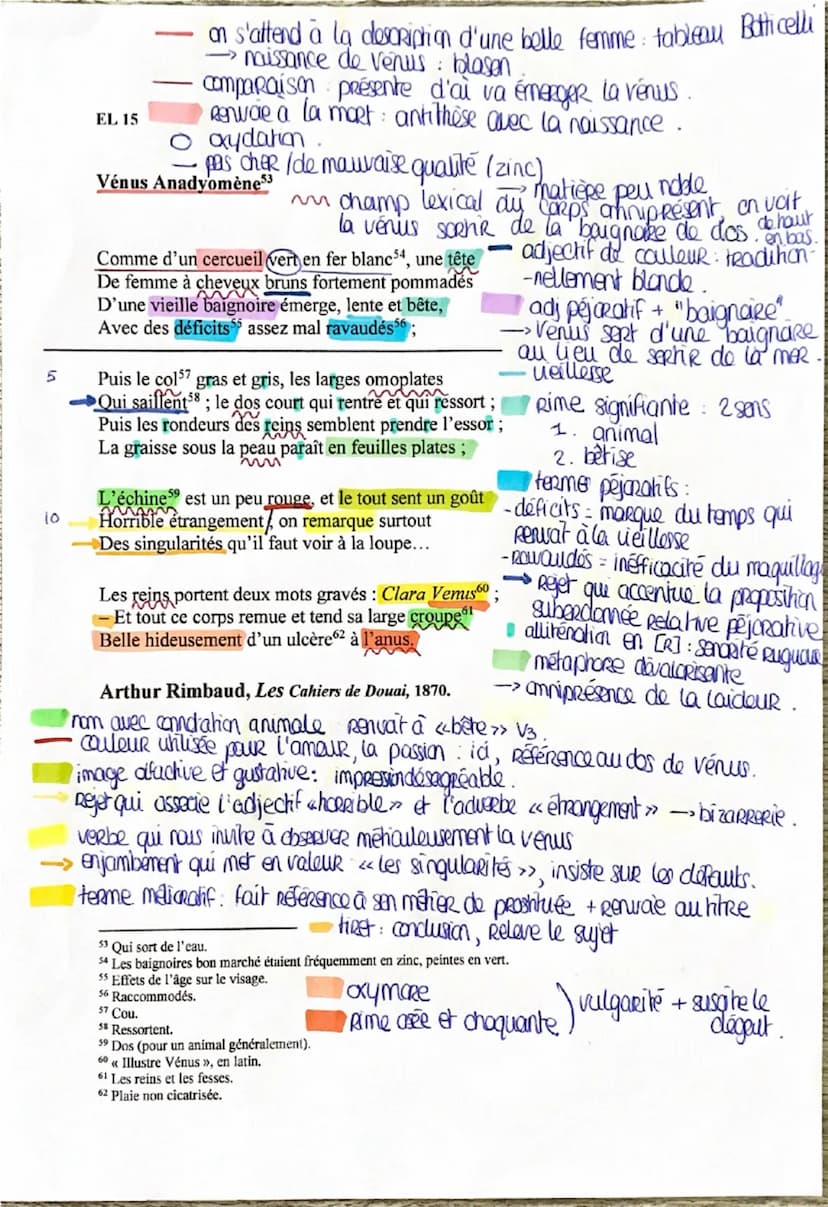 on s'attend à la description d'une belle femme : tableau Botticelli
→ naissance de vénus : blason
comparaison : présente d'où va émerger la vénus.
EL 15
renvoie à la mort : antithèse avec la naissance.
oxydation.
pas cher / de mauvaise qualité (zinc)
→ matière peu noble
Vénus Anadyomène⁵³
champ lexical du corps omniprésent, on voit
la vénus sortir de la baignoire de dos. de haut
en bas.
Comme d'un cercueil vert en fer blanc⁵⁴, une tête
De femme à cheveux bruns fortement pommadés
D'une vieille baignoire émerge, lente et bête,
Avec des déficits⁵⁵ assez mal ravaudés⁵⁶ ;
adjectif de couleur : tradition-
-nellement blonde.
adj péjoratif + "baignoire"
→ Vénus sort d'une baignoire
au lieu de sortir de la mer.
vieillesse
5 Puis le col⁵⁷ gras et gris, les larges omoplates
Qui saillent⁵⁸ ; le dos court qui rentre et qui ressort ;
Puis les rondeurs des reins semblent prendre l'essor ;
La graisse sous la peau paraît en feuilles plates ;
rime signifiante : 2 sens
1. animal
2. bêtise
L'échine⁵⁹ est un peu rouge, et le tout sent un goût
10 Horrible étrangement, on remarque surtout
Des singularités qu'il faut voir à la loupe...
termes péjoratifs :
- déficits = marque du temps qui
renvoit à la vieillesse
- ravaudés = inéfficacité du maquillage
Les reins portent deux mots gravés : Clara Venus⁶⁰ ;
– Et tout ce corps remue et tend sa large croupe⁶¹
Belle hideusement d'un ulcère⁶² à l'anus.
→ Rejet qui accentue la proposition
subordonnée relative péjorative
allitération en [R] : sonorité rugueuse
métaphore dévalorisante
→ omniprésence de la laideur.
Arthur Rimbaud, Les Cahiers de Douai, 1870.
nom avec connotation animale renvoit à «bête» V3.
couleur utilisée pour l'amour, la passion : ici, référence au dos de vénus.
image olfactive et gustative : impression désagréable.
Rejet qui associe l'adjectif «horrible» et l'adverbe «étrangement» → bizarrerie.
verbe qui nous invite à observer méticuleusement la vénus
→ enjambement qui met en valeur «les singularités», insiste sur les défauts.
terme mélioratif : fait référence à son métier de prostituée + renvoie au titre
tiret : conclusion, relève le sujet
⁵³ Qui sort de l'eau.
⁵⁴ Les baignoires bon marché étaient fréquemment en zinc, peintes en vert.
⁵⁵ Effets de l'âge sur le visage.
⁵⁶ Raccommodés.
⁵⁷ Cou.
⁵⁸ Ressortent.
⁵⁹ Dos (pour un animal généralement).
⁶⁰ « Illustre Vénus », en latin.
⁶¹ Les reins et les fesses.
⁶² Plaie non cicatrisée.
oxymore
rime osée et choquante
) vulgarité + suscite le
dégout.